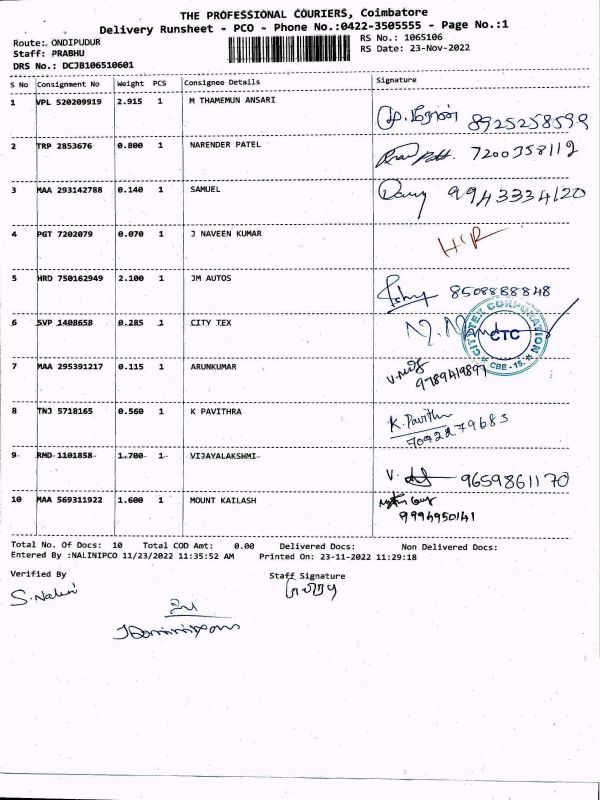 THE PROFESSIONAL COURIERS, Coimbatore
Delivery Runsheet - PCO - Phone No.:0422-3505555 - Page No.:1
Route: ONDIPUDUR RS No.: 1065106
Staff: PRABHU RS Date: 23-Nov-2022
DRS No.: DCJB106510601
S No Consignment No Weight PCS Consignee Details Signature
1 VPL 520209919 2.915 1 M THAMEMUN ANSARI 8925258599
2 TRP 2853676 0.800 1 NARENDER PATEL 7200358112
3 MAA 293142788 0.140 1 SAMUEL 9943334120
4 PGT 7202079 0.070 1 J NAVEEN KUMAR
5 HRD 750162949 2.100 1 JM AUTOS 8508888848
6 SVP 1408658 0.285 1 CITY TEX
CITYTEX CORPORATION
CTC
CBE-15.
7 MAA 295391217 0.115 1 ARUNKUMAR 9789419897
8 TNJ 5718165 0.560 1 K PAVITHRA K. Pavithra
7092279683
9 RMD 1101858 1.700 1 VIJAYALAKSHMI V. 9659861170
10 MAA 569311922 1.600 1 MOUNT KAILASH
9994950141
Total No. Of Docs: 10 Total COD Amt: 0.00 Delivered Docs: Non Delivered Docs:
Entered By :NALINIPCO 11/23/2022 11:35:52 AM Printed On: 23-11-2022 11:29:18
Verified By Staff Signature
S. Nalini